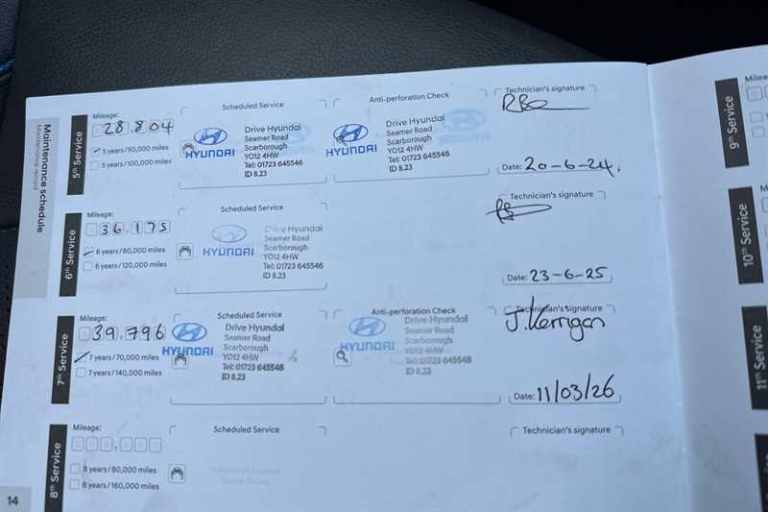 Maintenance schedule
Maintenance record
5th Service
Mileage:
28,804
5 years/50,000 miles
5 years/100,000 miles
Scheduled Service
HYUNDAI
Drive Hyundai
Seamer Road
Scarborough
YO12 4HW
Tel: 01723 645546
ID 8.23
Anti-perforation Check
HYUNDAI
Drive Hyundai
Seamer Road
Scarborough
YO12 4HW
Tel: 01723 645546
ID 8.23
Technician's signature
Date: 20-6-24.
6th Service
Mileage:
36,175
6 years/60,000 miles
6 years/120,000 miles
Scheduled Service
HYUNDAI
Drive Hyundai
Seamer Road
Scarborough
YO12 4HW
Tel: 01723 645546
ID 8.23
Technician's signature
Date: 23-6-25
7th Service
Mileage:
39,796
7 years/70,000 miles
7 years/140,000 miles
Scheduled Service
HYUNDAI
Drive Hyundai
Seamer Road
Scarborough
YO12 4HW
Tel: 01723 645546
ID 8.23
Anti-perforation Check
HYUNDAI
Drive Hyundai
Seamer Road
Scarborough
YO12 4HW
Tel: 01723 645546
ID 8.23
Technician's signature
J. Kerrigan
Date: 11/03/26
8th Service
Mileage:
8 years/80,000 miles
8 years/160,000 miles
Scheduled Service
Technician's signature
14
9th Service
Mileage
10th Service
Mileage
11th Service